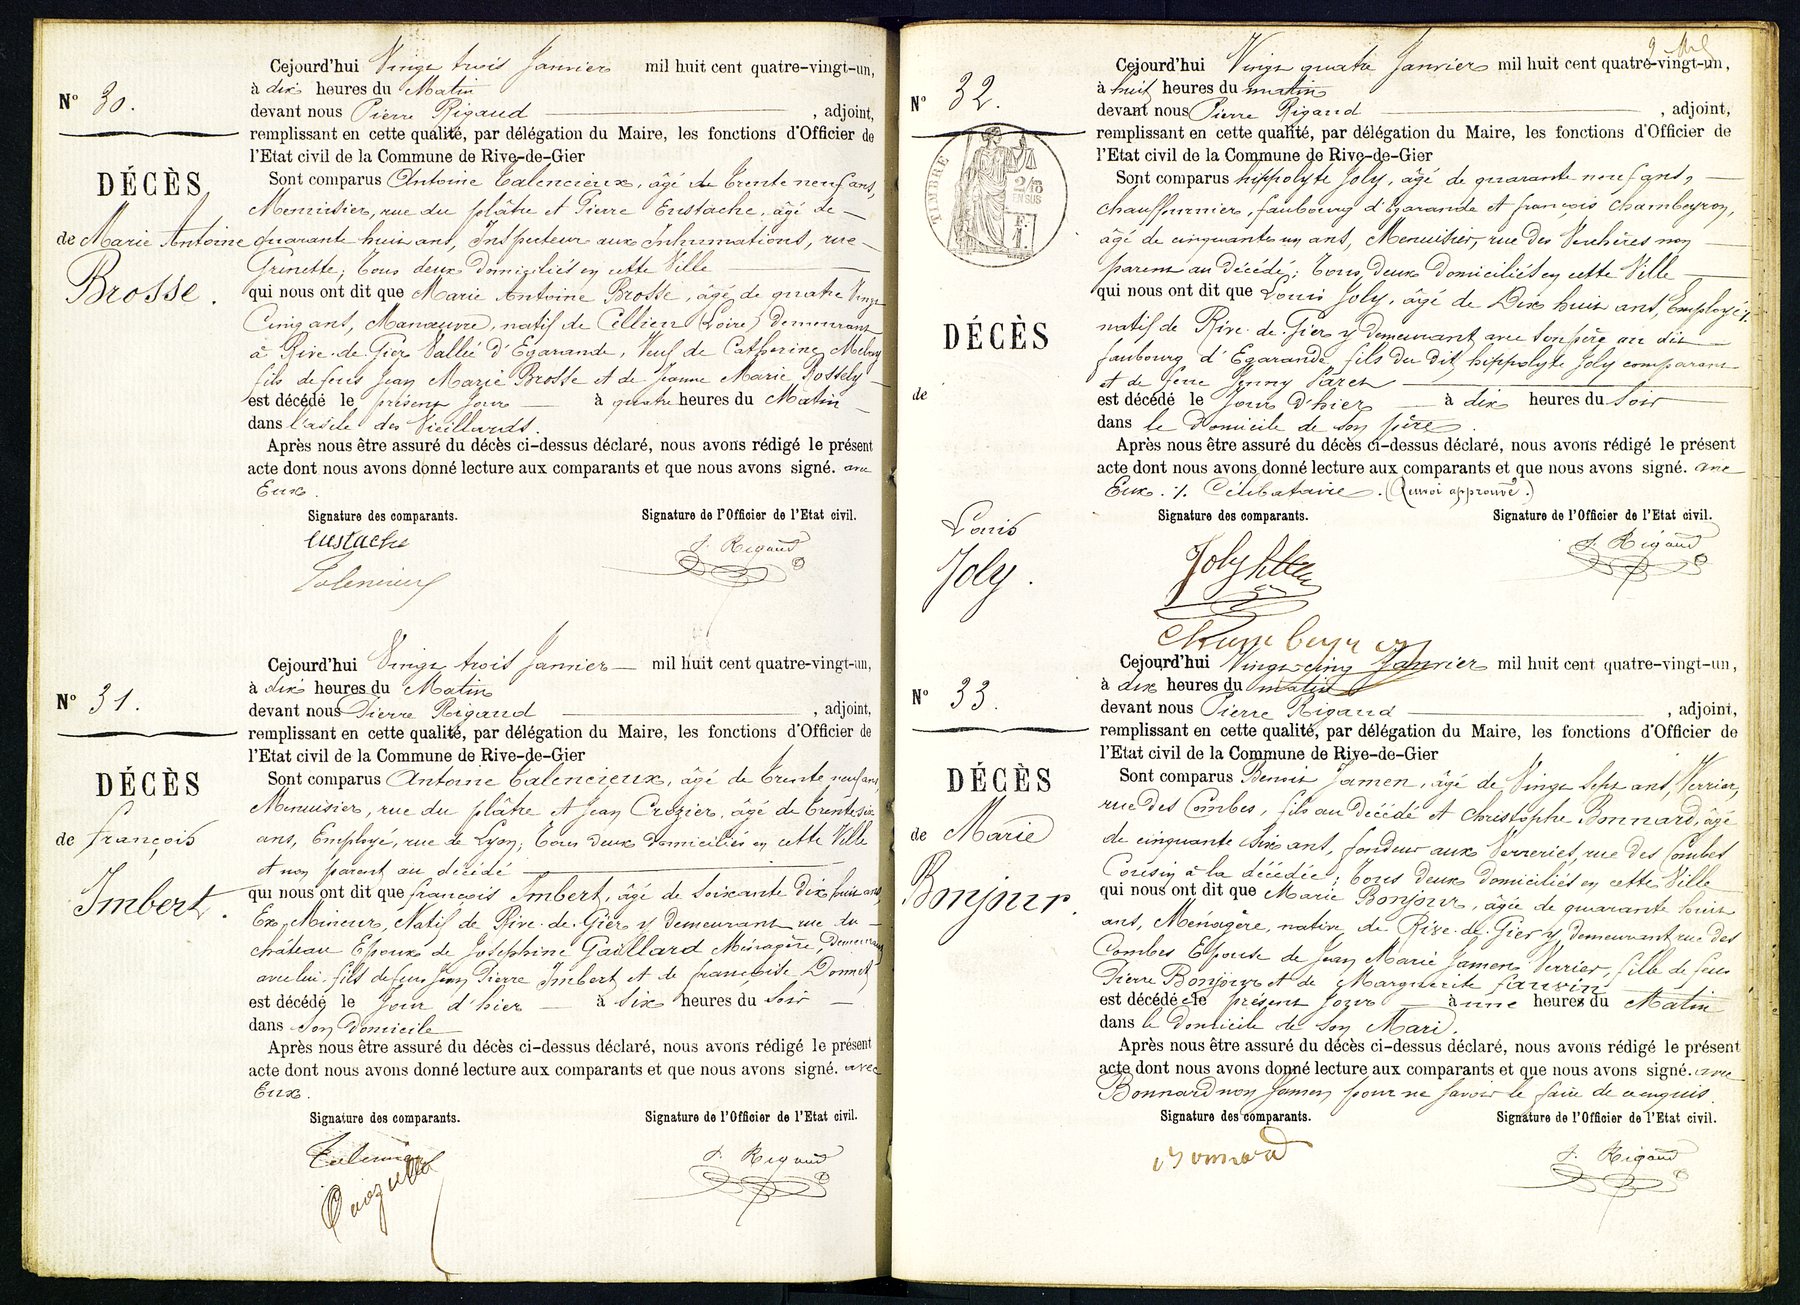 Cejourd'hui Vingt trois Janvier mil huit cent quatre-vingt-un,
à dix heures du Matin
N° 30.
devant nous Pierre Rigaud, adjoint,
remplissant en cette qualité, par délégation du Maire, les fonctions d'Officier de
l'Etat civil de la Commune de Rive-de-Gier
DÉCÈS
Sont comparus Antoine Talencieux, âgé de trente neuf ans,
Menuisier, rue du plâtre et Pierre Eustache, âgé de
de Marie Antoine
quarante huit ans, Inspecteur aux Inhumations, rue
Grenette; tous deux domiciliés en cette Ville
Brosse.
qui nous ont dit que Marie Antoine Brosse, âgé de quatre Vingt
Cinq ans, Manœuvre, natif de Cellieu (Loire) demeurant
à Rive-de-Gier Vallée d'Egarande, Veuf de Catherine
fils de feus Jean Marie Brosse et de Jeanne Marie
est décédé le présent Jour à quatre heures du Matin
dans l'asile des Vieillards.
Après nous être assuré du décès ci-dessus déclaré, nous avons rédigé le présent
acte dont nous avons donné lecture aux comparants et que nous avons signé. avec
Eux.
Signature des comparants. Signature de l'Officier de l'Etat civil.
Eustache
P. Rigaud
Talencieux
Cejourd'hui Vingt trois Janvier mil huit cent quatre-vingt-un,
à dix heures du Matin
N° 31.
devant nous Pierre Rigaud, adjoint,
remplissant en cette qualité, par délégation du Maire, les fonctions d'Officier de
l'Etat civil de la Commune de Rive-de-Gier
DÉCÈS
Sont comparus Antoine Talencieux, âgé de trente neuf ans,
Menuisier, rue du plâtre et Jean Crozier, âgé de trente six
de françois
ans, Employé, rue de Lyon; tous deux domiciliés en cette Ville
et non parent au décédé
Imbert.
qui nous ont dit que françois Imbert, âgé de soixante dix huit ans,
Ex Mineur, Natif de Rive-de-Gier y demeurant rue du
château Epoux de Joséphine Gaillard Ménagère demeurant
avec lui, fils de feus Jean Pierre Imbert et de françoise Donnet
est décédé le Jour d'hier à six heures du Soir
dans son domicile
Après nous être assuré du décès ci-dessus déclaré, nous avons rédigé le présent
acte dont nous avons donné lecture aux comparants et que nous avons signé. avec
Eux.
Signature des comparants. Signature de l'Officier de l'Etat civil.
P. Rigaud
Cejourd'hui Vingt quatre Janvier mil huit cent quatre-vingt-un,
à huit heures du matin
N° 32.
devant nous Pierre Rigaud, adjoint,
remplissant en cette qualité, par délégation du Maire, les fonctions d'Officier de
l'Etat civil de la Commune de Rive-de-Gier
TIMBRE
2/10
EN SUS
Sont comparus hippolyte Joly, âgé de quarante neuf ans,
chauffournier, faubourg d'Egarande et françois Chambeyron,
âgé de cinquante un ans, Menuisier, rue des Verchères non
parent au décédé; tous deux domiciliés en cette Ville
qui nous ont dit que Louis Joly, âgé de Dix huit ans, Employé %
DÉCÈS
natif de Rive-de-Gier y demeurant avec son père au dit
faubourg d'Egarande fils du dit hippolyte Joly comparant
et de feue Jenny Paret
de
est décédé le Jour d'hier à dix heures du Soir
dans le Domicile de son père.
Après nous être assuré du décès ci-dessus déclaré, nous avons rédigé le présent
acte dont nous avons donné lecture aux comparants et que nous avons signé. avec
Eux. % Célibataire. (Renvoi approuvé.)
Signature des comparants. Signature de l'Officier de l'Etat civil.
Louis
Joly.
Joly
P. Rigaud
Chambeyron
Cejourd'hui Vingt-cinq Janvier mil huit cent quatre-vingt-un,
à dix heures du matin
N° 33.
devant nous Pierre Rigaud, adjoint,
remplissant en cette qualité, par délégation du Maire, les fonctions d'Officier de
l'Etat civil de la Commune de Rive-de-Gier
DÉCÈS
Sont comparus Benoit Jamen, âgé de Vingt Sept ans, Verrier,
rue des Combes, fils au décédé et Christophe Bonnard, âgé
de Marie
de cinquante six ans, fondeur aux Verreries, rue des Combes
Cousin à la décédée; tous deux domiciliés en cette Ville
Bonjour.
qui nous ont dit que Marie Bonjour, âgée de quarante huit
ans, Ménagère, native de Rive-de-Gier y demeurant rue des
Combes Epouse de Jean Marie Jamen Verrier, fille de feus
Pierre Bonjour et de Marguerite fauvin
est décédée le présent Jour à une heures du Matin
dans le domicile de son Mari.
Après nous être assuré du décès ci-dessus déclaré, nous avons rédigé le présent
acte dont nous avons donné lecture aux comparants et que nous avons signé. avec
Bonnard non Jamen pour ne savoir le faire de ce enquis.
Signature des comparants. Signature de l'Officier de l'Etat civil.
Bonnard
P. Rigaud